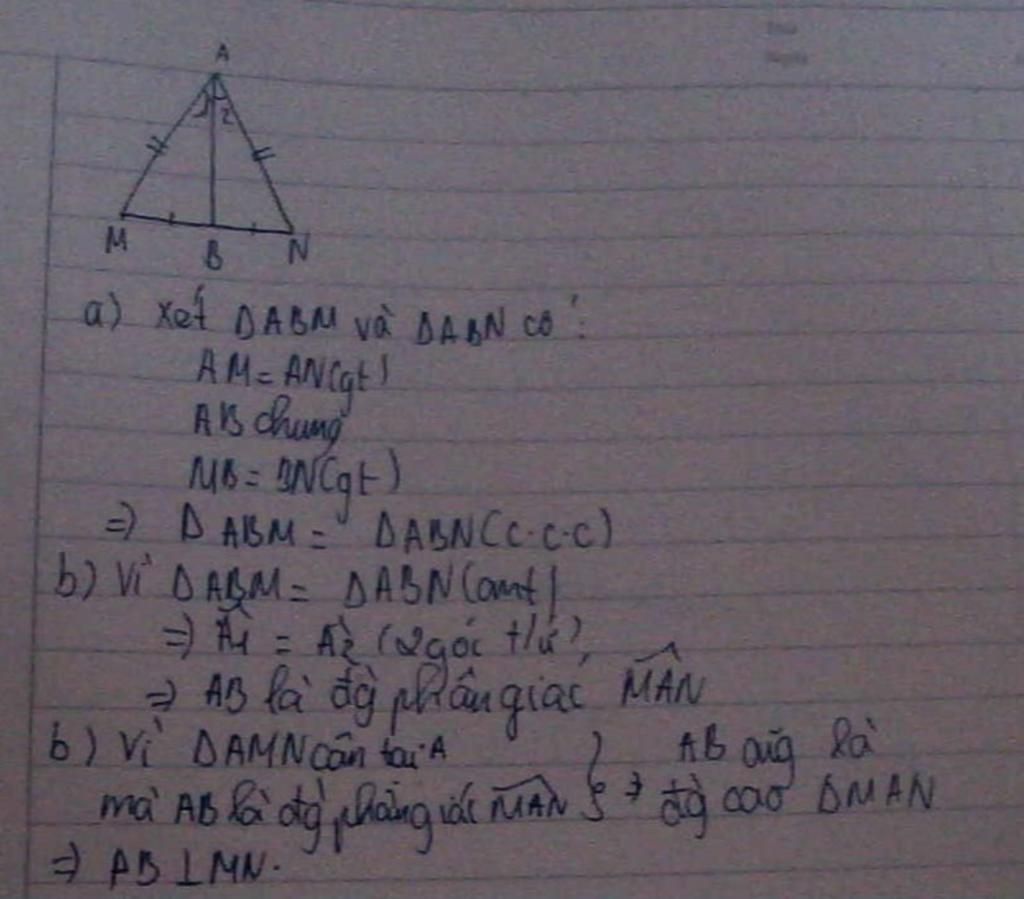 A
1 2
M B N
a) Xét ΔABM và ΔABN có:
AM = AN(gt)
AB chung
MB = BN(gt)
=> ΔABM = ΔABN(c.c.c)
b) Vì ΔABM = ΔABN(cmt)
=> Â1 = Â2 (2 góc t/ứ)
=> AB là đg phân giác MAN
b) Vì ΔAMN cân tại A } AB cũg là
mà AB là đg phâng iác MAN } => đg cao ΔMAN
=> AB ⊥ MN.